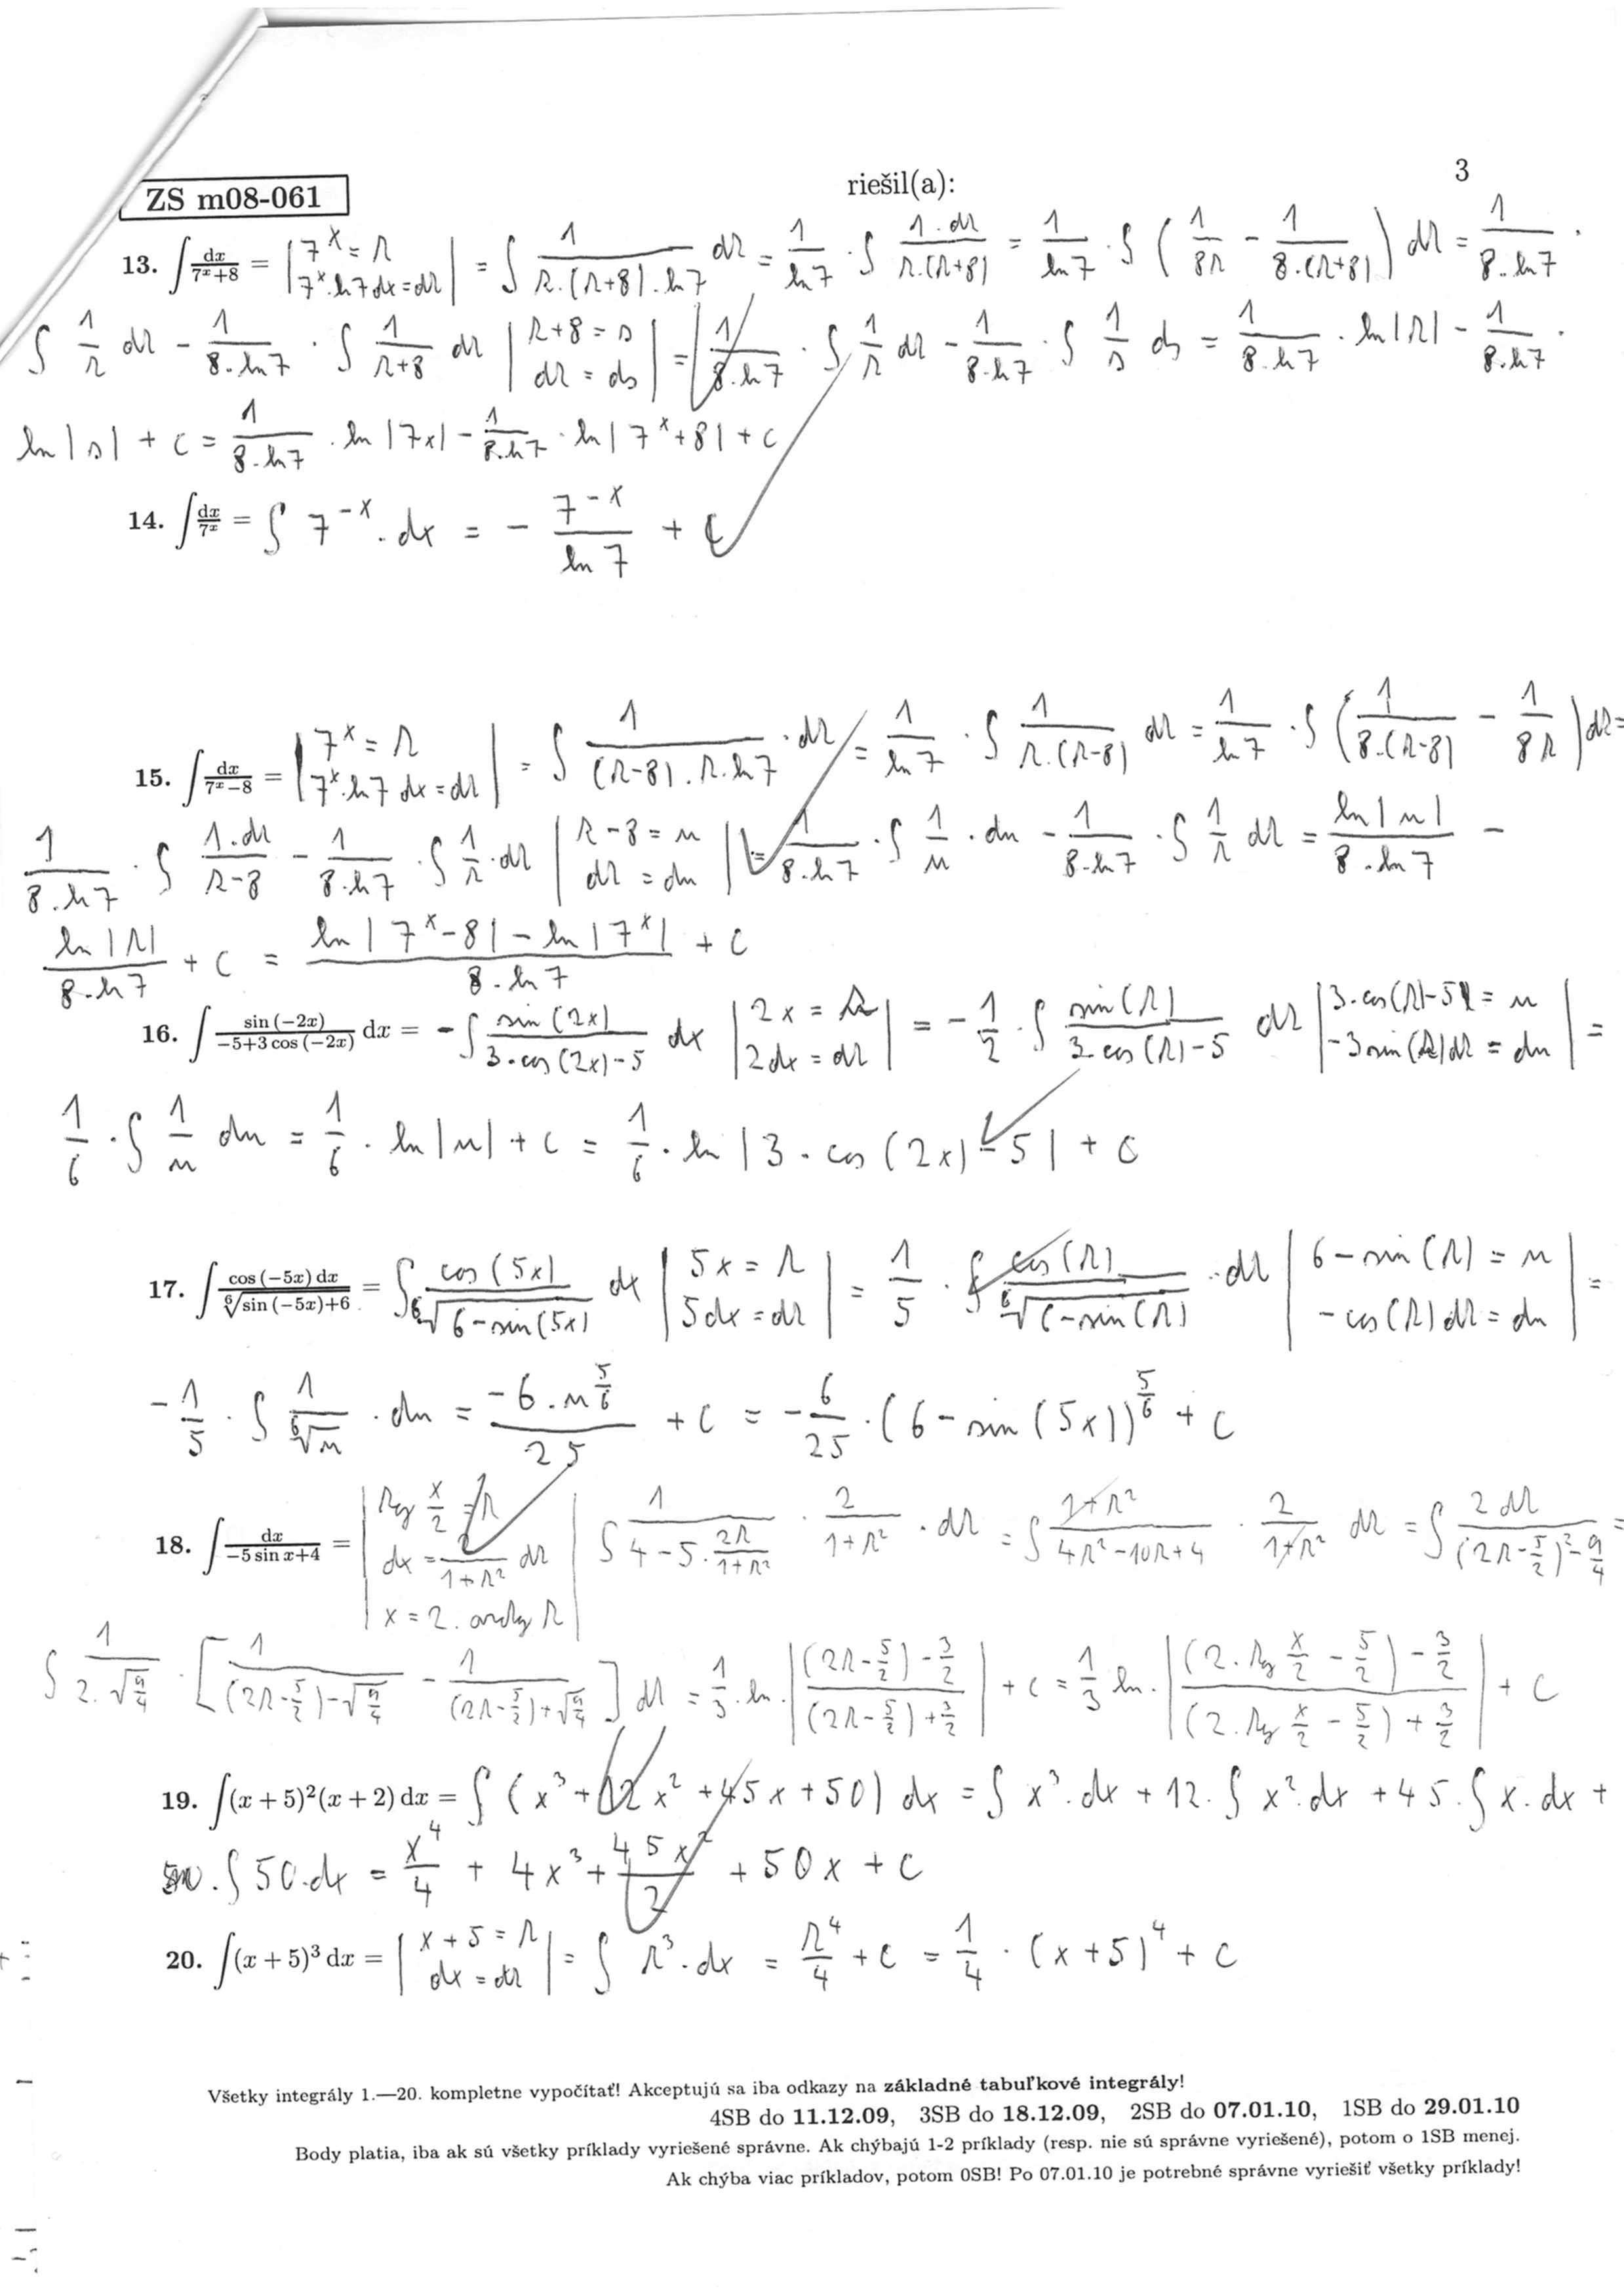 ZS m08-061 riešil(a): 3
13. ∫ dx/(7^x+8) = | 7^x = t ; 7^x·ln7 dx = dt | = ∫ 1/(t·(t+8)·ln7) dt = 1/ln7 · ∫ 1·dt/(t·(t+8)) = 1/ln7 · ∫ (1/8t − 1/(8·(t+8))) dt = 1/(8·ln7) ·
∫ 1/t dt − 1/(8·ln7) · ∫ 1/(t+8) dt | t+8 = s ; dt = ds | = 1/(8·ln7) · ∫ 1/t dt − 1/(8·ln7) · ∫ 1/s ds = 1/(8·ln7) · ln|t| − 1/(8·ln7) ·
ln|s| + c = 1/(8·ln7) · ln|7x| − 1/(8·ln7) · ln|7^x+8| + c
14. ∫ dx/7^x = ∫ 7^−x · dx = − 7^−x/ln7 + c
15. ∫ dx/(7^x−8) = | 7^x = t ; 7^x·ln7 dx = dt | = ∫ 1/((t−8)·t·ln7) · dt = 1/ln7 · ∫ 1/(t·(t−8)) dt = 1/ln7 · ∫ (1/(8·(t−8)) − 1/8t) dt =
1/(8·ln7) · ∫ 1·dt/(t−8) − 1/(8·ln7) · ∫ 1/t · dt | t−8 = u ; dt = du | = 1/(8·ln7) · ∫ 1/u · du − 1/(8·ln7) · ∫ 1/t dt = ln|u|/(8·ln7) −
ln|t|/(8·ln7) + c = (ln|7^x−8| − ln|7^x|)/(8·ln7) + c
16. ∫ sin(−2x)/(−5+3cos(−2x)) dx = − ∫ sin(2x)/(3·cos(2x)−5) dx | 2x = t ; 2dx = dt | = − 1/2 · ∫ sin(t)/(3·cos(t)−5) dt | 3·cos(t)−5 = u ; −3sin(t)dt = du | =
1/6 · ∫ 1/u du = 1/6 · ln|u| + c = 1/6 · ln|3·cos(2x)−5| + c
17. ∫ cos(−5x) dx/⁶√(sin(−5x)+6) = ∫ cos(5x)/⁶√(6−sin(5x)) dx | 5x = t ; 5dx = dt | = 1/5 · ∫ cos(t)/⁶√(6−sin(t)) · dt | 6−sin(t) = u ; −cos(t)dt = du | =
− 1/5 · ∫ 1/⁶√u · du = −6·u^(5/6)/25 + c = − 6/25 · (6−sin(5x))^(5/6) + c
18. ∫ dx/(−5 sin x+4) = | tg x/2 = t ; dx = 2/(1+t²) dt ; x = 2·arctg t | ∫ 1/(4−5·2t/(1+t²)) · 2/(1+t²) · dt = ∫ (1+t²)/(4t²−10t+4) · 2/(1+t²) dt = ∫ 2dt/((2t−5/2)²−9/4) =
∫ 1/(2·√(9/4)) · [1/((2t−5/2)−√(9/4)) − 1/((2t−5/2)+√(9/4))] dt = 1/3 · ln · |((2t−5/2)−3/2)/((2t−5/2)+3/2)| + c = 1/3 ln · |((2·tg x/2 − 5/2) − 3/2)/((2·tg x/2 − 5/2) + 3/2)| + c
19. ∫(x + 5)²(x + 2) dx = ∫ (x³+12x²+45x+50) dx = ∫ x³·dx + 12·∫ x²·dx + 45·∫ x·dx +
·∫ 50·dx = x⁴/4 + 4x³ + 45x²/2 + 50x + c
20. ∫(x + 5)³ dx = | x+5 = t ; dx = dt | = ∫ t³·dx = t⁴/4 + c = 1/4 · (x+5)⁴ + c
Všetky integrály 1.—20. kompletne vypočítať! Akceptujú sa iba odkazy na základné tabuľkové integrály!
4SB do 11.12.09, 3SB do 18.12.09, 2SB do 07.01.10, 1SB do 29.01.10
Body platia, iba ak sú všetky príklady vyriešené správne. Ak chýbajú 1-2 príklady (resp. nie sú správne vyriešené), potom o 1SB menej.
Ak chýba viac príkladov, potom 0SB! Po 07.01.10 je potrebné správne vyriešiť všetky príklady!